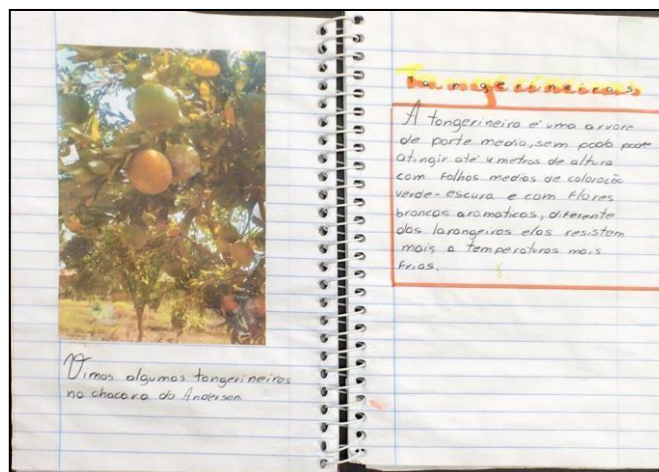 Vimos algumas tangerineiras
na chacara do Anderson
Tangerineiras
A tangerineira é uma arvore
de porte medio, sem poda pode
atingir até 4 metros de altura
com folhas medias de coloração
verde-escura e com flores
brancas aromaticas, diferente
das laranjeiras elas resistem
mais a temperaturas mais
frias.